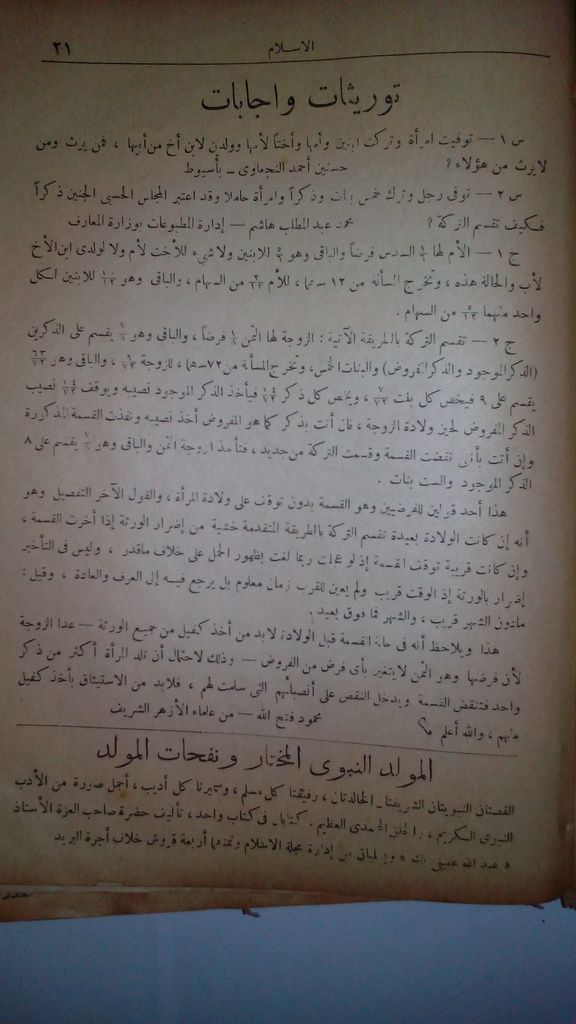 الاسلام
٢١
توريثات واجابات
س ١ — توفيت امرأة وتركت ابنين وأمها وأختاً لأمها وولدين لابن أخ من أبيها ، فمن يرث ومن
لا يرث من هؤلاء ؟ حسنين أحمد النجماوى ـ بأسيوط
س ٢ — توفى رجل وترك خمس بنات وذكراً وامرأة حاملا وقد اعتبر المجلس الحسبى الجنين ذكراً
فكيف تقسم التركة ؟ محمد عبد المطلب هاشم — إدارة المطبوعات بوزارة المعارف
ج ١ — الأم لها ١/٦ السدس فرضاً والباقى وهو ٥/٦ للابنين ولا شىء للأخت لأم ولا لولدى ابن الأخ
لأب والحالة هذه ، وتخرج المسألة من ١٢ سهما ، للأم ٢/١٢ من السهام ، والباقى وهو ١٠/١٢ للابنين لكل
واحد منهما ٥/١٢ من السهام .
ج ٢ — تقسم التركة بالطريقة الآتية : الزوجة لها الثمن ١/٨ فرضاً ، والباقى وهو ٧/٨ يقسم على الذكرين
(الذكر الموجود والذكر المفروض) والبنات الخمس، وتخرج المسألة من ٧٢ سهما ، للزوجة ٩/٧٢ ، والباقى وهو ٦٣/٧٢
يقسم على ٩ فيخص كل بنت ٧/٧٢ ، ويخص كل ذكر ١٤/٧٢ فيأخذ الذكر الموجود نصيبه ويوقف ١٤/٧٢ نصيب
الذكر المفروض لحيز ولادة الزوجة ، فان أتت بذكر كما هو المفروض أخذ نصيبه ونفذت القسمة المذكورة
وإن أتت بأنثى نقضت القسمة وقسمت التركة من جديد ، فتأخذ الزوجة الثمن والباقى وهو ٧/٨ يقسم على ٨
الذكر الموجود والست بنات .
هذا أحد قولين للفرضيين وهو القسمة بدون توقف على ولادة المرأة ، والقول الآخر التفصيل وهو
أنه إن كانت الولادة بعيدة تقسم التركة بالطريقة المتقدمة خشية من إضرار الورثة إذا أخرت القسمة ،
وإن كانت قريبة توقف القسمة إذ لو عجلت ربما لغت بظهور الحمل على خلاف ما قدر ، وليس فى التأخير
إضرار بالورثة إذ الوقت قريب ولم يعين للقرب زمان معلوم بل يرجع فيه إلى العرف والعادة ، وقيل :
مادون الشهر قريب ، والشهر فما فوق بعيد .
هذا ويلاحظ أنه فى حالة القسمة قبل الولادة لابد من أخذ كفيل من جميع الورثة — عدا الزوجة
لأن فرضها وهو الثمن لا يتغير بأى فرض من الفروض — وذلك لاحتمال أن تلد المرأة أكثر من ذكر
واحد فتنقض القسمة ويدخل النقص على أنصبائهم التى سلمت لهم ، فلابد من الاستيثاق بأخذ كفيل
منهم ، والله أعلم محمود فتح الله — من علماء الأزهر الشريف
المولد النبوى المختار ونفحات المولد
القصتان النبويتان الشريفتان الخالدتان ، رفيقتا كل مسلم ، وسميرتا كل أديب ، أجمل صورة من الأدب
النبوى الكريم ، والخلق المحمدى العظيم . كتابان فى كتاب واحد ، تأليف حضرة صاحب العزة الأستاذ
« عبد الله عفيفى بك » ويطلبان من إدارة مجلة الاسلام وثمنهما أربعة قروش خلاف أجرة البريد